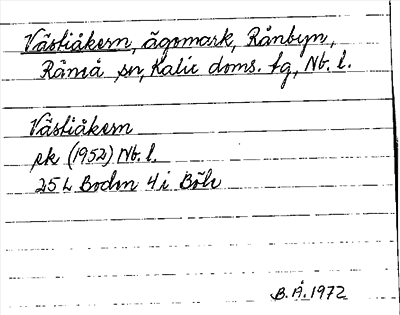 Västiåkern, ägomark, Rånbyn,
Råneå sn, Kalix doms. tg, Nb. l.
Västiåkern
ek (1952) Nb. l.
25 L Boden 4 i Böle
B. Å. 1972